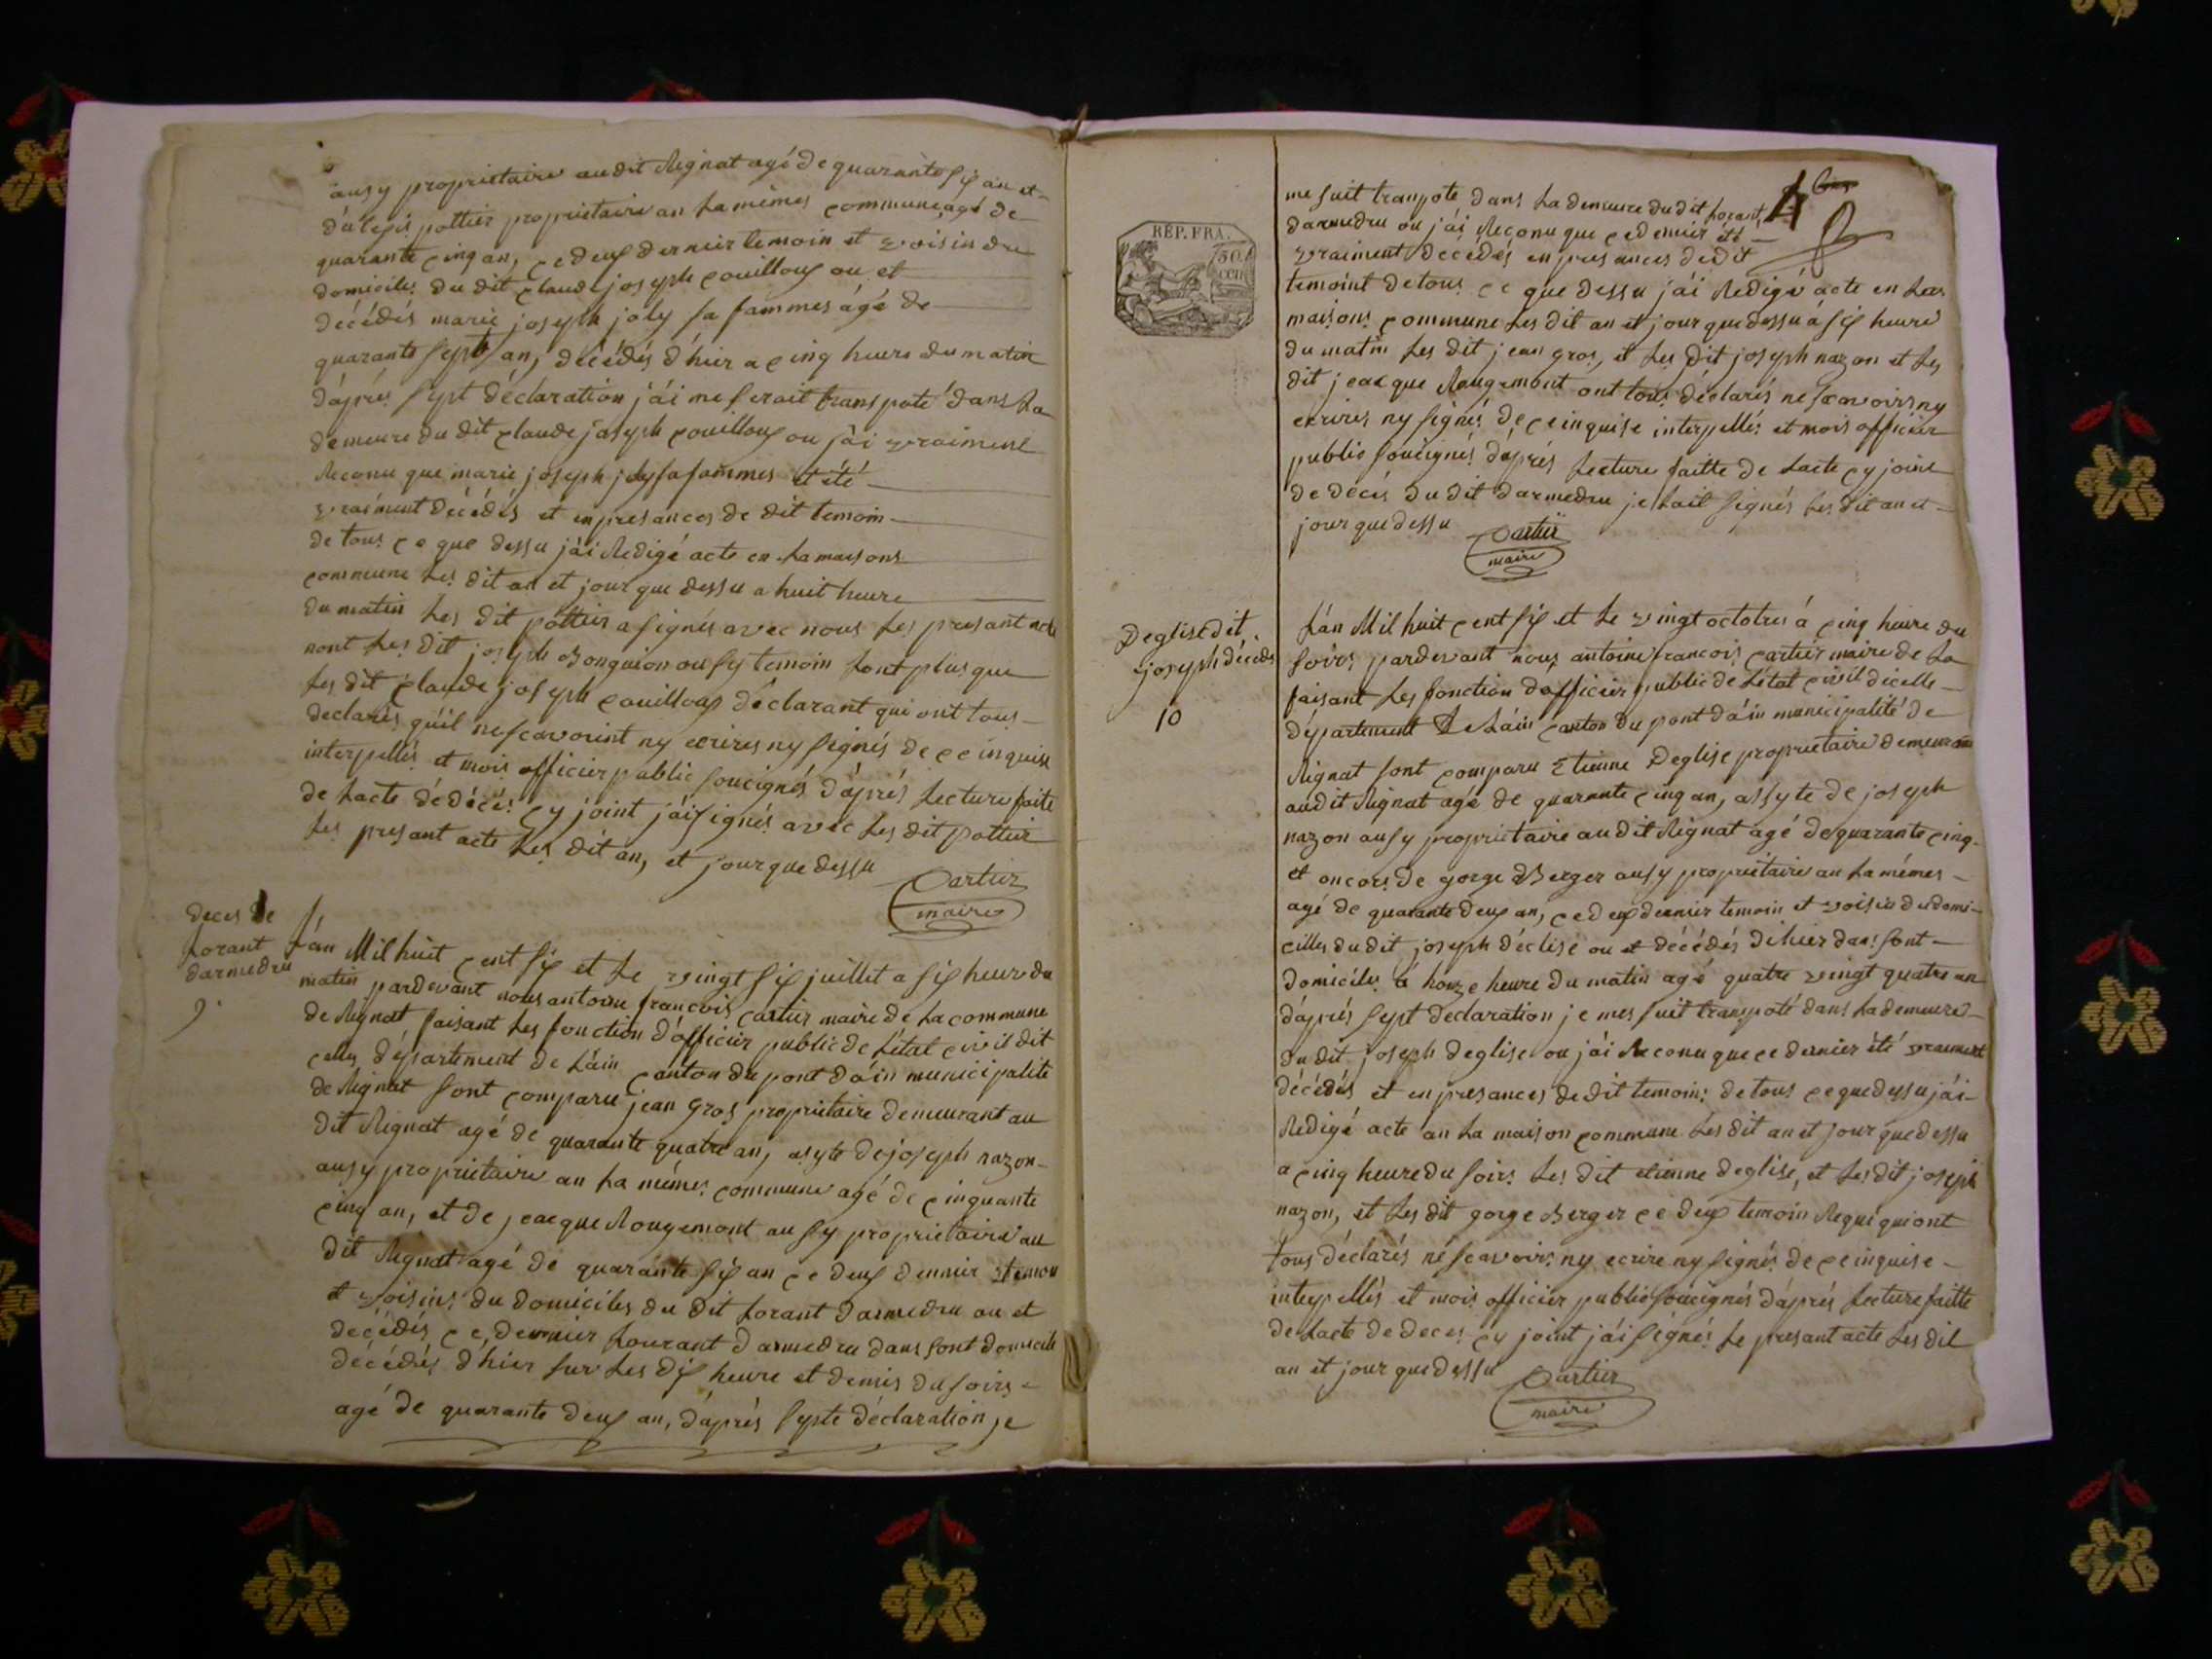 ausy proprietaire audit Rignat agé de quarante six an et
d'alexis pottier proprietaire an La mêmes commune, agé de
quarante cinq an, ce deux dernier temoin et voisin du
domicile du dit claude joseph couilloux ou et
décédés marie joseph joly sa fammes agé de
quarante sept an, décédés d'hier a cinq heure du matin
d'aprés sept déclaration j'ái me serait transpoté dans La
demeure du dit claude joseph couilloux ou j'ai vraiment
Reconu que marie joseph joly sa fammes et été
vraiment décédés et en presances de dit temoin
de tous ce que dessu j'ái Redigé acte en La maisons
commune Les dit an et jour que dessu a huit heure
du matin Les dit pottier a signés avec nous Les presant acte
nont Les dit joseph Bonguion ausy temoin Nont plus que
Les dit claude joseph couilloux déclarant qui ont tous
declarés qu'il ne scavoint ny ecrires ny signés de ce inquise
interpellés et mois officier public soucignés d'aprés Lecture faite
de Lacte dédécés cy joint j'ái signés avec Les dit pottier
Les presant acte Les dit an, et jour que dessu
Cartier
maire
deces de
Lorant
darmedru
9.
L'án Mil huit cent six et Le vingt six juillet a six heure du
matin pardevant nous antoine francois cartier maire de La commune
de Rignat faisant Les fonction d'officier public de L'état civil dit
celles département de L'áin canton du pont d'áin municipalité
de Rignat sont comparu jean gros proprietaire demeurant au
dit Rignat agé de quarante quatre an, asyté de joseph nazon
ausy proprietaire an La mêmes commune agé de cinquante
cinq an, et de jeacque Rougemont ausy proprietaire au
dit Rignat agé de quarante six an ce deux dernier temoin
et voisins du domiciles du dit Lorant darmedru ou et
décédés ce dernier Lourant darmedru dans sont domicile
décédés d'hier sur Les dix heure et demis du soirs
agé de quarante deux an, d'áprés sypte déclaration je
4 bis
REP. FRA.
50
cen
me suit tranpoté dans La demeure du dit Lorant
darmedru ou j'ái Reconu que ce dernier été
vraiment décédés en presances dedit
temoint de tous ce que dessu j'ái Redigé acte en Las
maisons commune Les dit an et jour que dessu á six heure
du matin Les dit jean gros, et Les dit joseph nazon et Les
dit jeacque Rougemont ont tous déclarés ne scavoirs ny
ecrires ny signés de ce inquise interpellés et mois officier
public soucignés d'áprés Lecture faitte de Lacte cy joint
de décés du dit darmedru je Lait signés Les dit an et
jour que dessu
Cartier
maire
Deglise dit
joseph décédés
10
L'án Mil huit cent six et Le vingt octobres á cinq heure du
soirs pardevant nous antoine francois cartier maire de La
faisant Les fonction d'officier public de L'état civil dicelle
département de L'áin canton du pont d'áin municipalité de
Rignat sont comparu Etienne Deglise proprietaire demeurant
audit Rignat agé de quarante cinq an, assyté de joseph
nazon ausy proprietaire au dit Rignat agé de quarante cinq
et oncors de gorge Berger ausy proprietaire an La mémes
agé de quarante deux an, ce deux dernier temoin et voisin du domi-
cilles du dit joseph déclise ou et décédés dehier dans sont
domiciles á honze heure du matin agé quatre vingt quatre an
d'áprés sept declaration je mes suit transpoté dans La demeure
du dit joseph deglise ou j'ái Reconu que ce dernier été vraiment
décédés et en presances dedit temoins de tous ce que dessu j'ái
Redigé acte an La maison commune Les dit an et jour que dessu
a cinq heure du soirs Les dit etienne deglise, et Les dit joseph
nazon, et Les dit gorge Berger ce deux temoin Requi qui ont
tous déclarés né scavoirs ny ecrire ny signés de ce inquise
interpellés et mois officier public soucignés d'áprés Lecture faitte
de Lacte de deces cy joint j'ái signés Le presant acte Les dit
an et jour que dessu
Cartier
maire